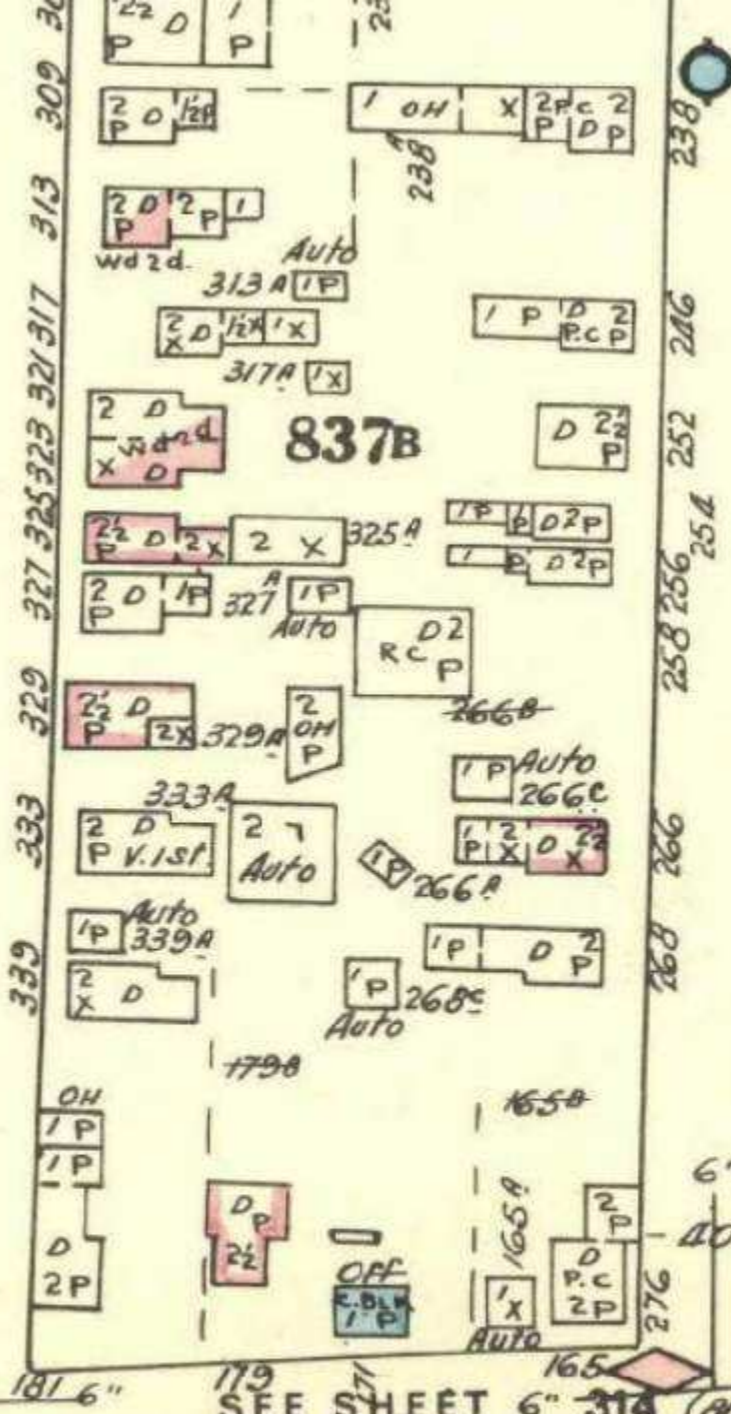 2½ D 1
P P
309
2 D 1½P
P
1 OH X 2P.C 2
P D P
238
238A
313
2 D 2 P 1
P
Wd 2d.
Auto
313A 1P
317
2 D 1½X 1X
X
1 P D 2
P.C P
246
317A 1X
321
323
2 D
Wd 2d
X D
837B
D 2½
P
252
325
2½ D 2X 2 X 325A
P
1P P D2P
254
1 P D 2P
256
327
2 D 1P
P
327A 1P
Auto
D2
RC P
258
329
2½ D
P 2X
329A
2
OH
P
266B
1P Auto
266C
333
333A
2 D
P V.1st.
2
Auto
1P
266A
1 2 D 2½
P X X
266
Auto
1P 339A
339
2 D
X
1P
268C
Auto
1P D 2
P
268
179B
165B
OH
1P
1P
D
2P
D P
2½
OFF
C.BLK
1 P
165A
1
X
Auto
2
P
D
P.C
2P
276
6"
40
181 6" 179 171 165
SEE SHEET 6" 314